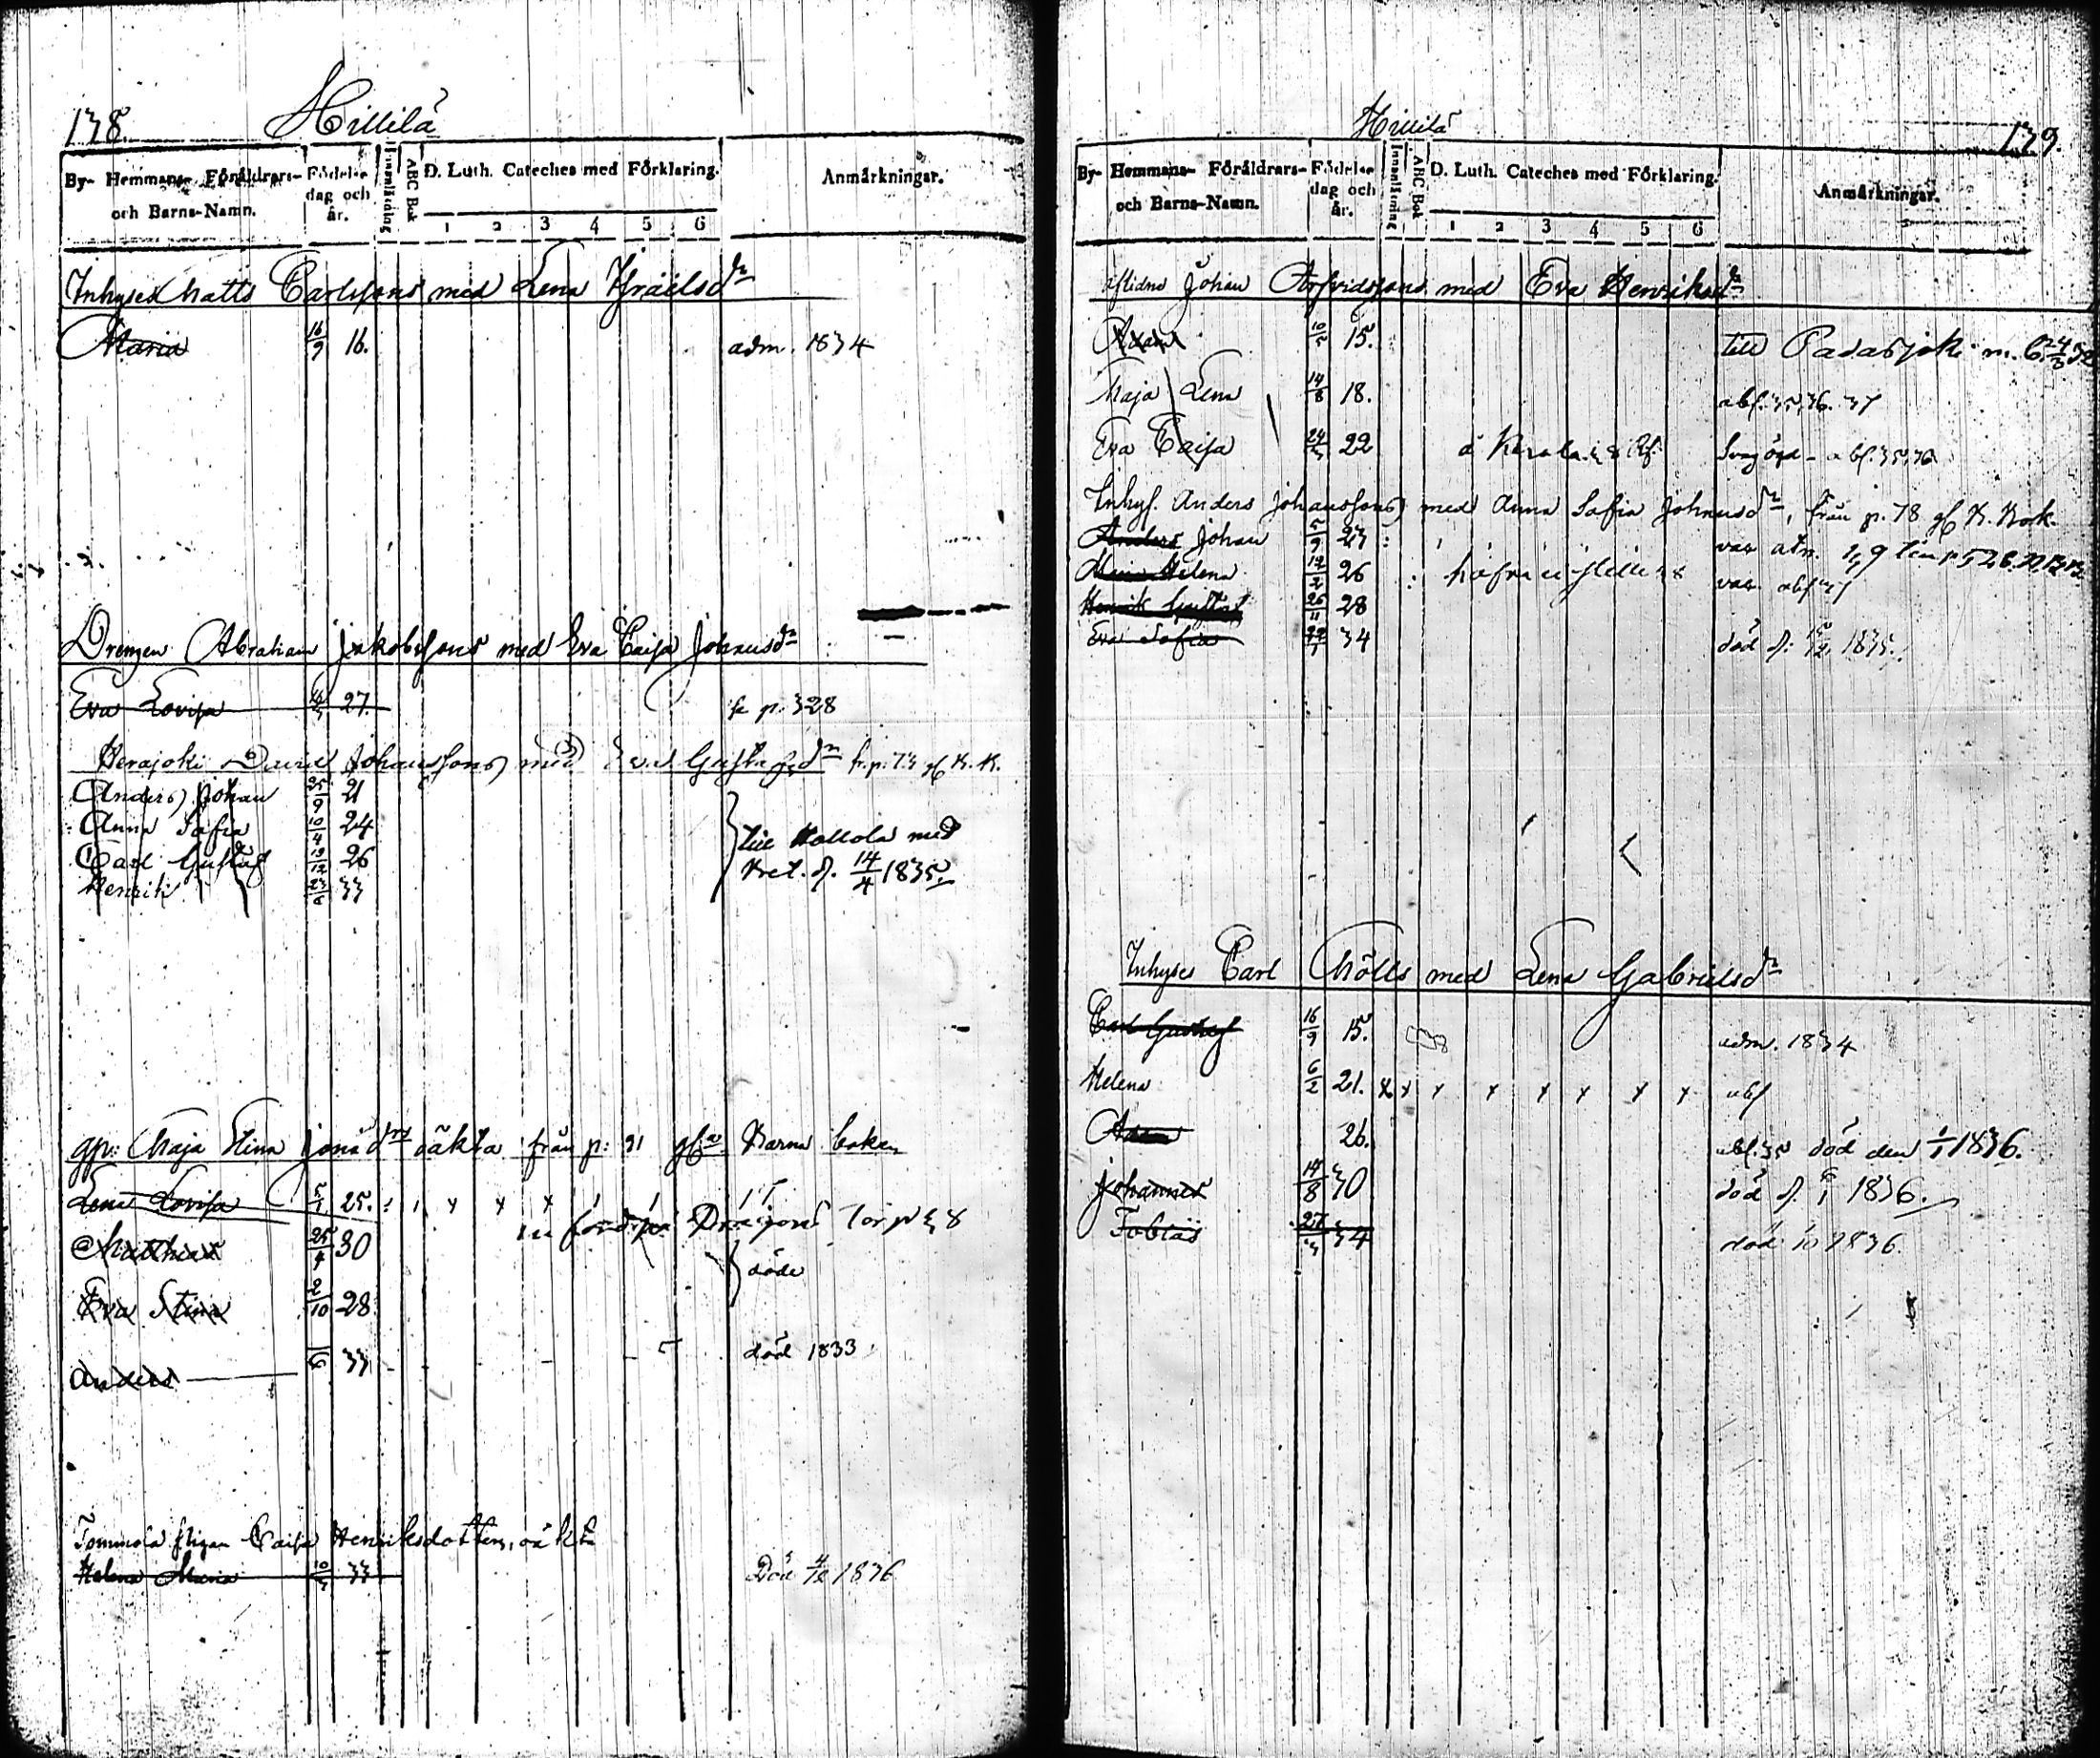 138.
Hillilä
By- Hemmans- Föräldrars- och Barns-Namn.
Födelse dag och år.
Innanläsning
ABC Bok
D. Luth. Cateches med Förklaring.
1 2 3 4 5 6
Anmärkningar.
Inhyses Matts Carlssons med Lena Israelsdr
Maria 16/9 16. adm. 1834
Drengen Abraham Jakobssons med Eva Caisa Johansdr
Eva Lovisa 27. se p. 328
Herajoki David Johanssons med Eva Gustafsdr fr. p. 73 gl. K. K.
Anders Johan 25/9 21
Anna Sofia 10/4 24
Carl Gustaf 19/12 26
Henrik 33
till Hollola med
Bet. d. 14/4 1835
gp: Maja Stina Jonædr oäkta från p: 91 gla Barna boken
Lena Lovisa 25.
Matthias 25/9 30
döde
Eva Stina 2/10 28
Anders 33 död 1833
Tommola pigan Caisa Henriksdotters, oäkt
Helena Maria 33 Död 4/12 1836
139.
Hillilä
By- Hemmans- Föräldrars- och Barns-Namn.
Födelse dag och år.
Innanläsning
ABC Bok
D. Luth. Cateches med Förklaring.
1 2 3 4 5 6
Anmärkningar.
aflidne Johan Arfvidssons med Eva Henriksdr
Adam 10/5 15. till Padasjoki m. b.
Maja Lena 14/8 18. abs. 35. 36. 37
Eva Caisa 22 Svagögd - abs. 35. 36
Inhys. Anders Johanssons med Anna Sofia Johansdr, från p. 78 gl. K. Bok.
Anders Johan 5/9 23
Maria Helena 12/2 26
Henrik Gustaf 26/11 28
Eva Sofia 34 död d: 1835.
Inhyses Carl Mölls med Lena Gabrielsdr
Carl Gustaf 16/9 15. adm. 1834
Helena 6/2 21. x x x x x x x x abs
Adam 26. abs. 35 död den 1/1 1836.
Johannes 14/8 30 död d. 6/1 1836.
Tobias 34 död 1836.